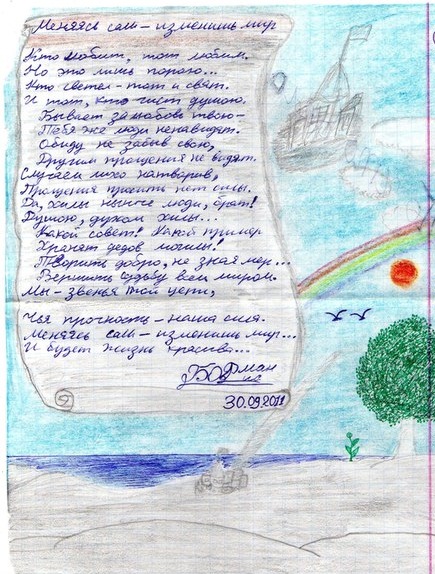 Меняясь сам – изменишь мир
Кто любит, тот любим.
Но это лишь порою...
Кто светел – тот и свят.
И тот, кто чист душою.
Бывает за любовь твою –
Тебя же люди ненавидят.
Обиду не забыв свою,
Другим прощения не видят.
Случаем лихо натворив,
Прощения просить нет силы.
Да, хилы нынче люди, брат!
Душою, духом хилы...
Какой совет! Какой пример
Хранят дедов могилы!
Творить добро, не зная мер...
Вершить судьбу всем миром.
Мы – звенья той цепи,
Чья прочность – наша сила.
Меняясь сам – изменишь мир...
И будет жизнь красива...
30.09.2011